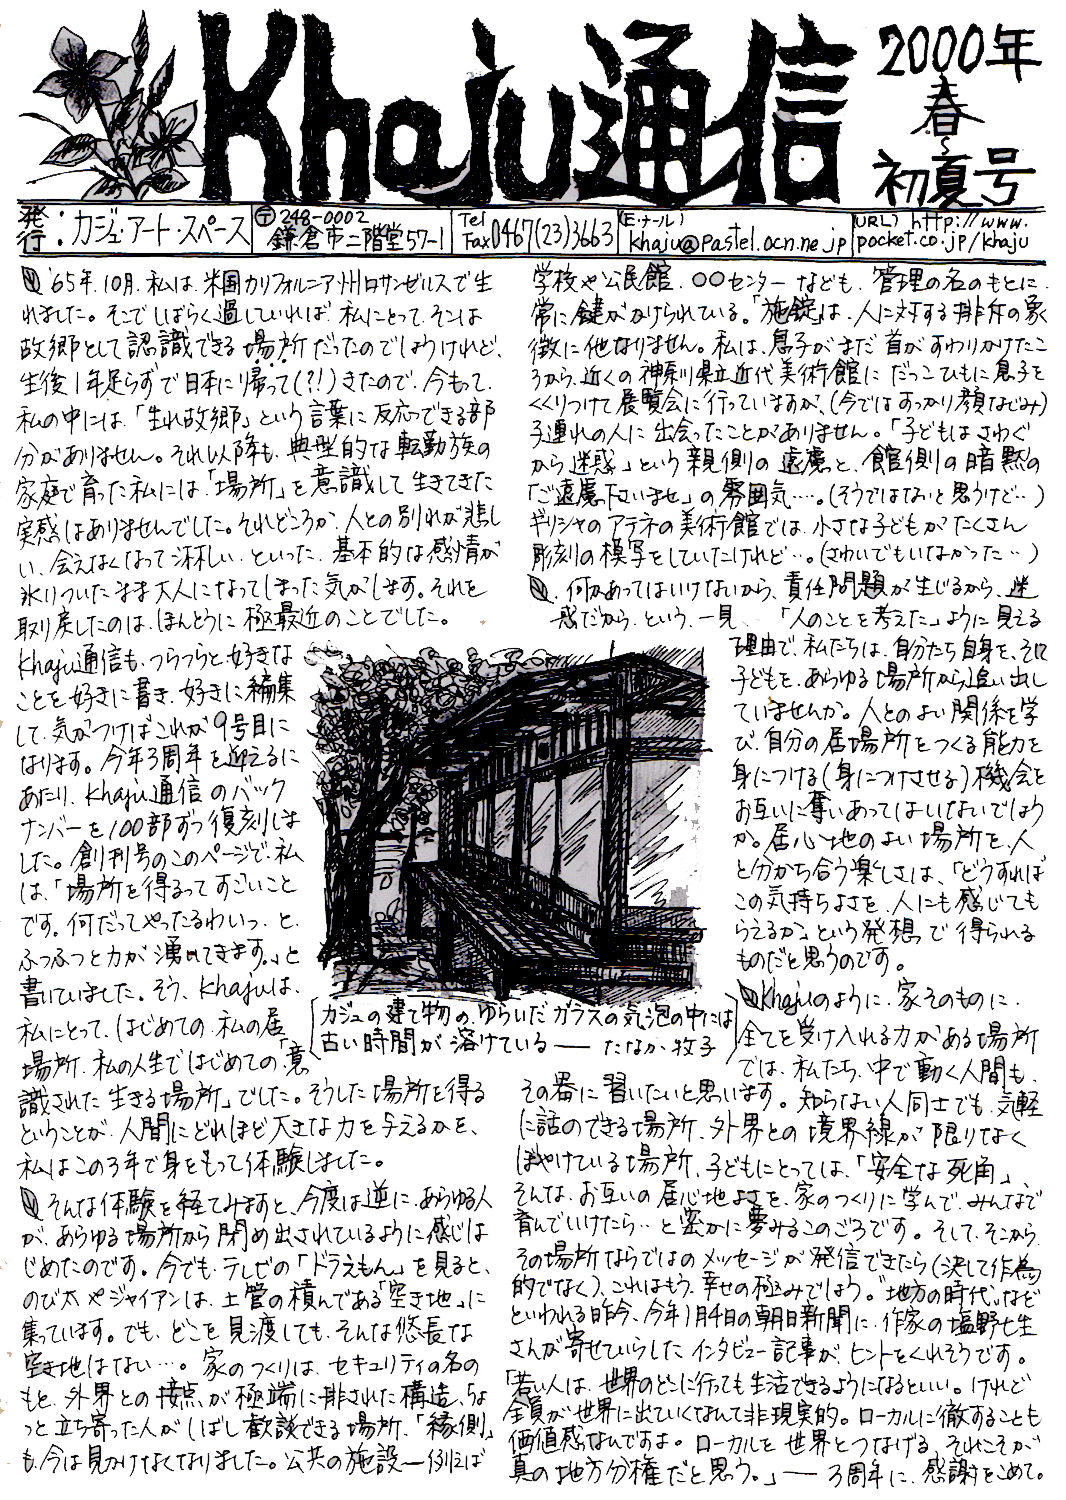 Khaju通信
2000年
春〜
初夏号
発行:カジュ・アート・スペース
〒248-0002
鎌倉市二階堂57-1
Tel
Fax 0467(23)3663
(E・メール)
khaju@pastel.ocn.ne.jp
(URL) http://www.
pocket.co.jp/khaju
'65年、10月、私は、米国カリフォルニア州ロサンゼルスで生
れました。そこでしばらく過していれば、私にとって、そこは
故郷として認識できる場所だったのでしょうけれど、
生後1年足らずで日本に帰って(?!)きたので、今もって、
私の中には、「生れ故郷」という言葉に反応できる部
分がありません。それ以降も、典型的な転勤族の
家庭で育った私には、「場所」を意識して生きてきた
実感はありませんでした。それどころか、人との別れが悲し
い、会えなくなって淋しい、といった、基本的な感情が
氷りついたまま大人になってしまった気がします。それを
取り戻したのは、ほんとうに極最近のことでした。
Khaju通信も、つらつらと好きな
ことを好きに書き、好きに編集
して、気がつけばこれが9号目に
なります。今年3周年を迎えるに
あたり、Khaju通信のバック
ナンバーを100部ずつ復刻しま
した。創刊号のこのページで、私
は、「場所を得るってすごいこと
です。何だってやったるわいっ、と、
ふつふつと力が湧いてきます。」と
書いていました。そう、Khajuは、
私にとって、はじめての、私の居
場所、私の人生ではじめての「意
識された生きる場所」でした。そうした場所を得る
ということが、人間にどれほど大きな力を与えるかを、
私はこの3年で身をもって体験しました。
そんな体験を経てみますと、今度は逆に、あらゆる人
が、あらゆる場所から閉め出されているように感じは
じめたのです。今でも、テレビの「ドラえもん」を見ると、
のび太やジャイアンは、土管の積んである「空き地」に
集っています。でも、どこを見渡しても、そんな悠長な
空き地はない…。家のつくりは、セキュリティの名の
もと、外界との接点が極端に排された構造、ちょ
っと立ち寄った人がしばし歓談できる場所、「縁側」
も、今は見かけなくなりました。公共の施設―例えば
学校や公民館、○○センターなども、管理の名のもとに、
常に鍵がかけられている。「施錠」は、人に対する排斥の象
徴に他なりません。私は、息子がまだ首がすわりかけたこ
ろから、近くの神奈川県立近代美術館に だっこひもに息子を
くくりつけて展覧会に行っていますが、(今ではすっかり顔なじみ)
子連れの人に出会ったことがありません。「子どもはさわぐ
から迷惑」という親側の遠慮と、館側の暗黙の
「ご遠慮下さいませ」の雰囲気…。(そうではないと思うけど…)
ギリシャのアテネの美術館では、小さな子どもがたくさん
彫刻の模写をしていたけれど…。(さわいでもいなかった…)
何かあってはいけないから、責任問題が生じるから、迷
惑だから、という、一見、「人のことを考えた」ように見える
理由で、私たちは、自分たち自身を、そして
子どもを、あらゆる場所から追い出し
ていませんか。人とのよい関係を学
び、自分の居場所をつくる能力を
身につける(身につけさせる)機会を
お互いに奪いあってはいないでしょう
か。居心地のよい場所を、人
と分かち合う楽しさは、「どうすれば
この気持ちよさを、人にも感じても
らえるか」という発想で得られる
ものだと思うのです。
Khajuのように、家そのものに、
全てを受け入れる力がある場所
では、私たち、中で動く人間も、
その器に習いたいと思います。知らない人同士でも、気軽
に話のできる場所、外界との境界線が限りなく
ぼやけている場所、子どもにとっては、「安全な死角」、
そんな、お互いの居心地よさを、家のつくりに学んで、みんなで
育んでいけたら…と密かに夢みるこのごろです。そして、そこから、
その場所ならではのメッセージが発信できたら(決して作為
的でなく)、これはもう、幸せの極みでしょう。"地方の時代"など
といわれる昨今、今年1月4日の朝日新聞に、作家の塩野七生
さんが寄せていらしたインタビュー記事が、ヒントをくれそうです。
「若い人は、世界のどこに行っても生活できるようになるといい。けれど
全員が世界に出ていくなんて非現実的。ローカルに徹することも
価値感なんですよ。ローカルを世界とつなげる、それこそが
真の地方分権だと思う。」―― 3周年に、感謝をこめて。
カジュの建て物の、ゆらいだガラスの気泡の中には
古い時間が溶けている ―― たなか牧子